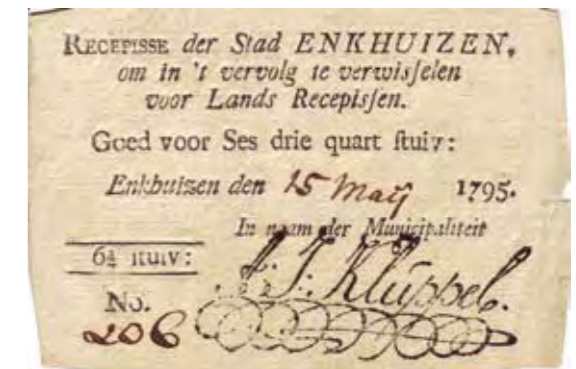 RECEPISSE der Stad ENKHUIZEN,
om in 't vervolg te verwisſelen
voor Lands Recepisſen.
Goed voor Ses drie quart ſtuiv:
Enkhuizen den 15 Maÿ 1795.
In naam der Municipaliteit
6¾ ſtuiv:
J. J. Kluppel.
No.
206